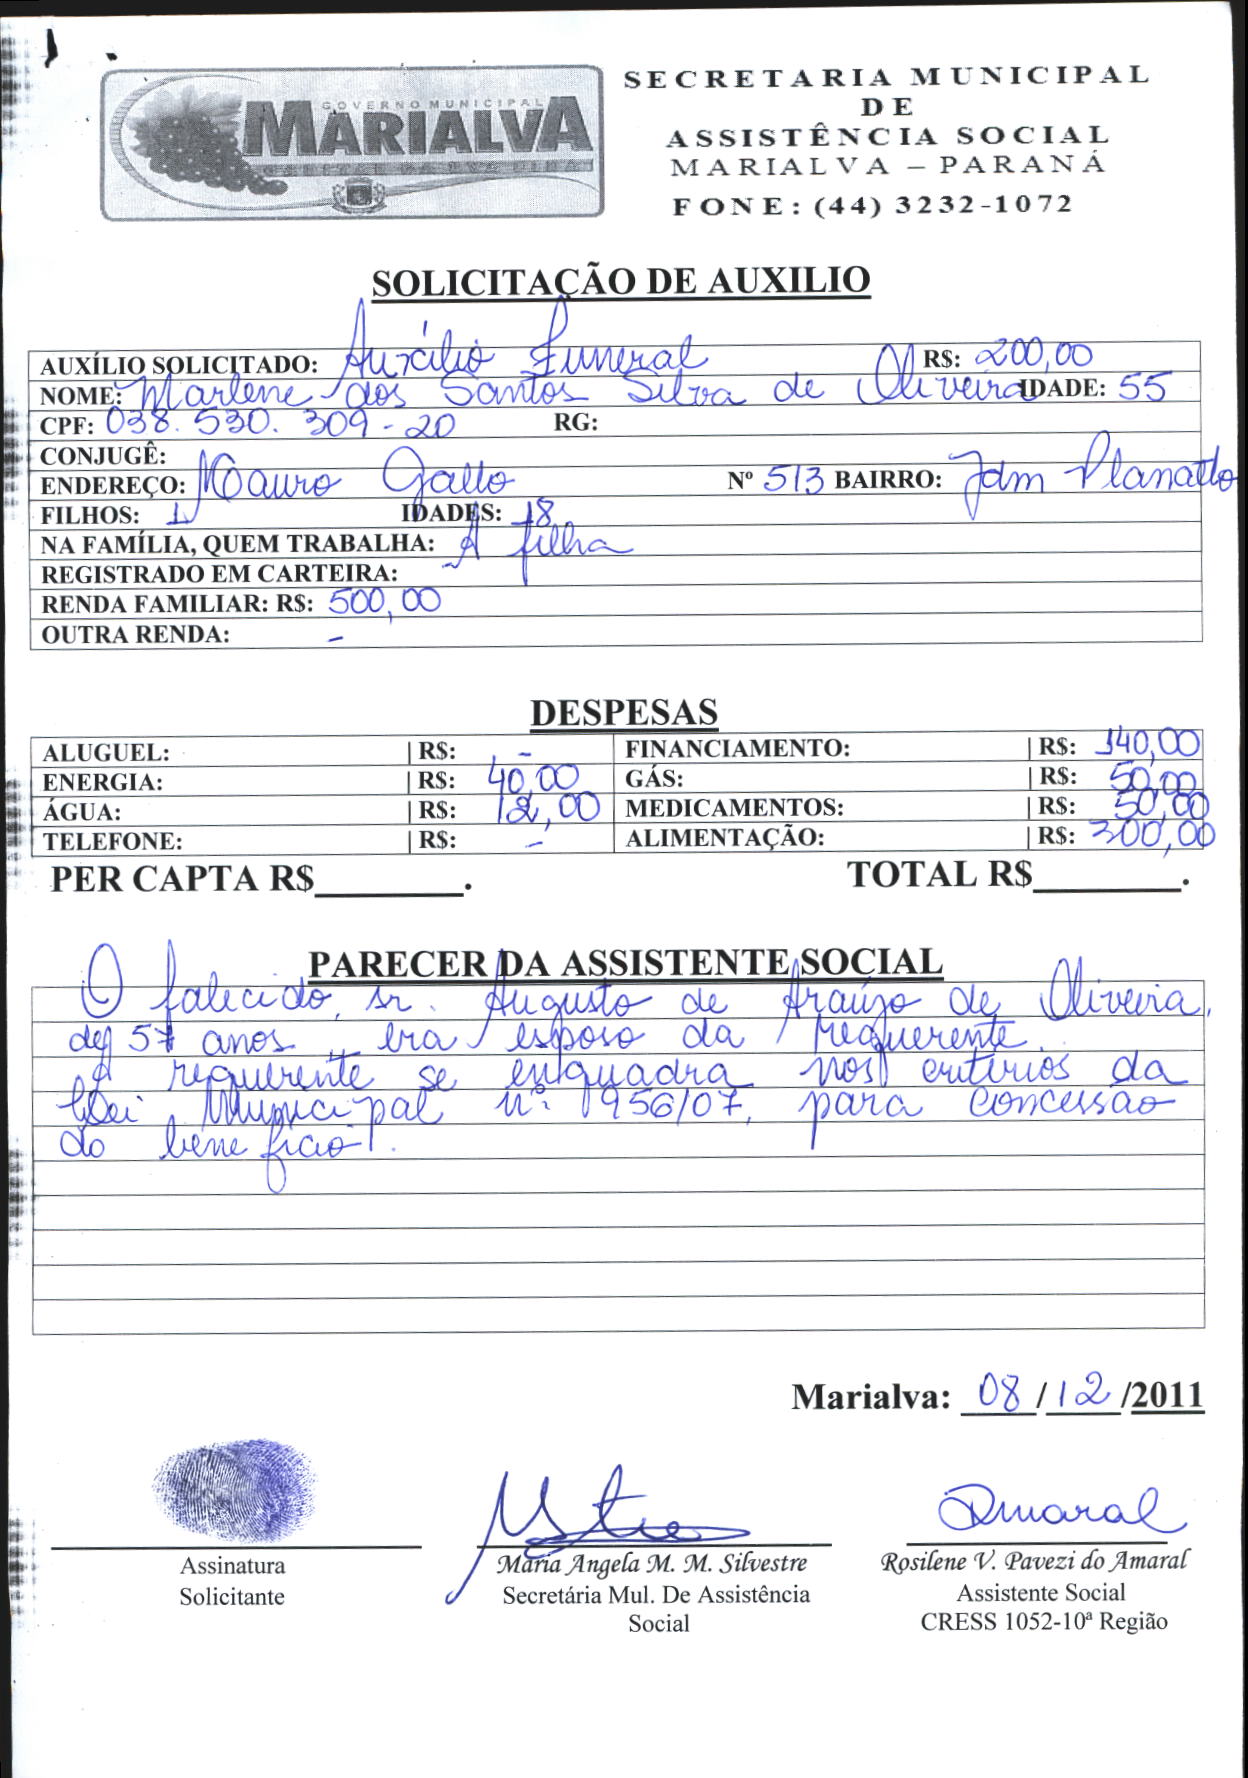 GOVERNO MUNICIPAL
MARIALVA
SECRETARIA MUNICIPAL
DE
ASSISTÊNCIA SOCIAL
MARIALVA – PARANÁ
FONE: (44) 3232-1072
SOLICITAÇÃO DE AUXILIO
AUXÍLIO SOLICITADO: Auxílio Funeral R$: 200,00
NOME: Marlene dos Santos Silva de Oliveira IDADE: 55
CPF: 038.530.309-20 RG:
CONJUGÊ:
ENDEREÇO: Mauro Gallo Nº 513 BAIRRO: Jdm Planalto
FILHOS: 1 IDADES: 18
NA FAMÍLIA, QUEM TRABALHA: A filha
REGISTRADO EM CARTEIRA:
RENDA FAMILIAR: R$: 500,00
OUTRA RENDA: -
DESPESAS
ALUGUEL: | R$: - FINANCIAMENTO: | R$: 140,00
ENERGIA: | R$: 40,00 GÁS: | R$: 50,00
ÁGUA: | R$: 12,00 MEDICAMENTOS: | R$: 50,00
TELEFONE: | R$: - ALIMENTAÇÃO: | R$: 300,00
PER CAPTA R$________. TOTAL R$________.
PARECER DA ASSISTENTE SOCIAL
O falecido, sr. Augusto de Araújo de Oliveira,
de 57 anos, era esposo da requerente.
A requerente se enquadra nos critérios da
Lei Municipal nº 1956/07, para concessão
do benefício.
Marialva: 08/12/2011
Amaral
Assinatura
Solicitante
Maria Angela M. M. Silvestre
Secretária Mul. De Assistência
Social
Rosilene V. Pavezi do Amaral
Assistente Social
CRESS 1052-10ª Região